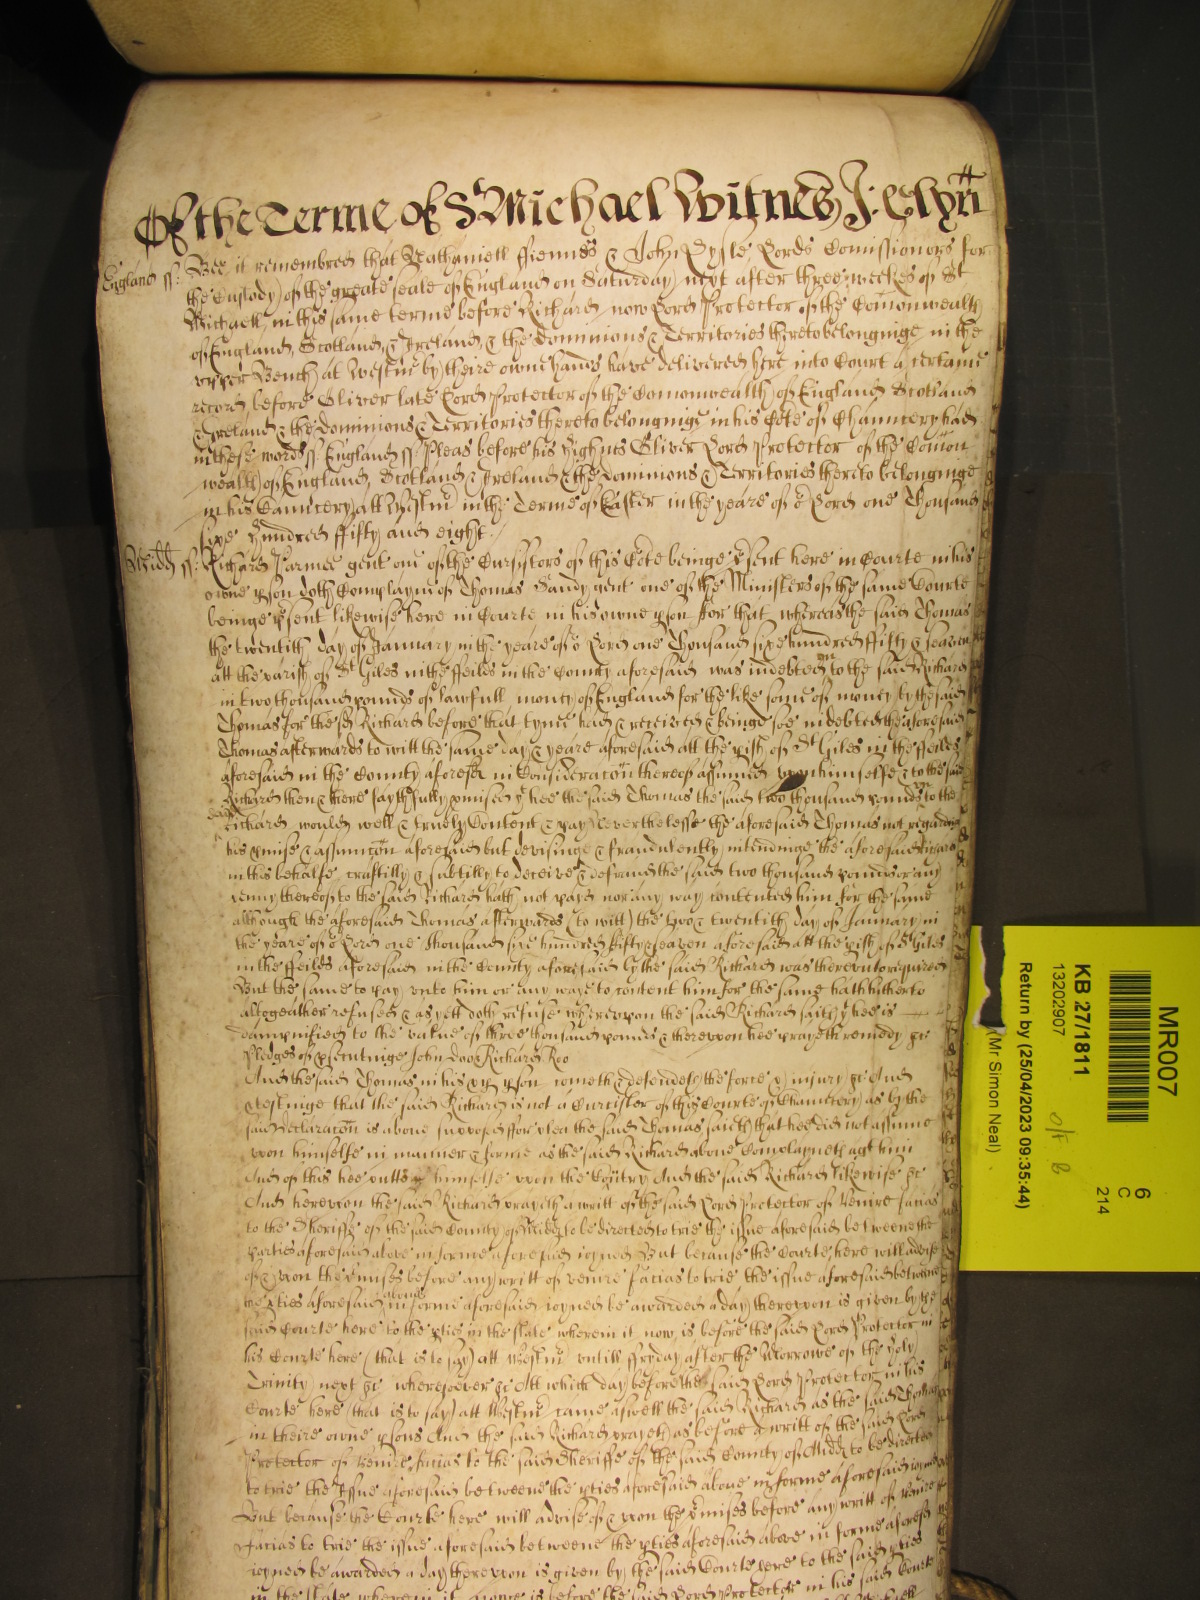 Of the Terme of St Michael Witnes J: Glyn
England ss: Bee it remembred that Nathaniell ffiennes & John Lysle Lords Comissioners for
the Custody of the greate seale of England on Saturday next after three weekes of St
Michaell in this same terme before Richard now Lord Protector of the Comonwealth
of England, Scotland, & Ireland, & the Dominions & Territories thereto belonginge in the
upper Bench at Westmr by theire owne hands have delivered here into Court a certaine
record before Oliver late Lord Protector of the Comonwealth of England Scotland
& Ireland & the Dominions & Territories thereto belonginge in his Cote of Chauncery had
in these words ss: England ss: Pleas before his Highnes Oliver Lord Protector of the Comon
wealth of England, Scotland & Ireland & the Dominions & Territories thereto belonginge
in his Chauncery att Westmr in the Terme of Easter in the yeare of or Lord one Thousand
sixe hundred ffifty and eight.
Midd ss: Richard Parmee gent one of the Cursistors of this Cote beinge psent here in Courte in his
owne pson doth Complayne of Thomas Bandy gent one of the Ministers of the same Courte
beinge psent likewise here in Courte in his owne pson for that whereas the said Thomas
the twentith day of January in the yeare of or Lord one Thousand sixe hundred ffifty & seaven
att the parish of St Giles in the ffeilds in the County aforesaid was indebted to the said Richard
in two thousand pounds of lawfull money of England for the like some of money by the said
Thomas for the sd Richard before that tyme had & received & beinge soe indebted the aforesaid
Thomas afterwards to witt the same day & yeare aforesaid att the pish of St Giles in the ffeilds
aforesaid in the County aforesd in Consideracon thereof assumed upon himselfe & to the said
Richard then & there faythfully pmised yt hee the said Thomas the said two thousand pounds to the
said Richard would well & truely Content & pay Neverthelesse the aforesaid Thomas not regarding
his pmise & assumcon aforesaid but devisinge & fraudulently intendinge the aforesaid Richard
in this behalfe craftilly & subtilly to deceive & defraud the said two thousand pounds or any
penny thereof to the said Richard hath not payd nor any way contented him for the same
although the aforesaid Thomas afterwards (to witt) the two & twentith day of January in
the yeare of or Lord one thousand sixe hundred fifty & seaven aforesaid att the pish of St Giles
in the ffeilds aforesaid in the County aforesaid by the said Richard was thereunto required
But the same to pay unto him or any waye to content him for the same hath hitherto
altogeather refused & as yett doth refuse whereupon the said Richard saith yt hee is
dampnified to the value of three thousand pounds & thereupon hee prayeth remedy &c
Pledges of psecutinge John Doo & Richard Roo
And the said Thomas in his pp pson cometh & defendeth the force & injury &c And
protestinge that the said Richard is not a Cursistor of this Courte of Chauncery as by the
said Declaracon is above supposed ffor plea the said Thomas saith that hee did not assume
upon himselfe in manner & forme as the said Richard above Complayneth agt him
And of this hee putts himselfe upon the Cuntry And the said Richard likewise &c
And hereupon the said Richard prayeth a writt of the said Lord Protector of Venire facias
to the Sheriffe of the said County of Midd to be directed to trie the issue aforesaid betweene the
parties aforesaid above in forme aforesaid ioyned But because the Courte here will advise
of & upon the pmises before any writt of venire facias to trie the issue aforesaid betweene
the pties aforesaid above in forme aforesaid ioyned be awarded a day thereupon is given by the
said Courte here to the pties in the state wherein it now is before the said Lord Protector in
his Courte here (that is to say) att Westmr untill ffryday after the Morrowe of the holy
Trinity next &c wheresoever &c Att which day before the said Lord Protector in his
Courte here (that is to say) att Westmr came aswell the said Richard as the said Thomas
in theire owne psons And the said Richard prayeth as before a writt of the said Lord
Protector of Venire facias to the said Sheriffe of the said County of Midd to be directed
to trie the Issue aforesaid betweene the pties aforesaid above in forme aforesaid ioyned
But because the Courte here will advise of & upon the pmises before any writt of venire
facias to trie the issue aforesaid betweene the pties aforesaid above in forme aforesd
ioyned be awarded a day thereupon is given by the said Courte here to the said pties
in the state wherein it nowe is before the said Lord Protector in his said Courte
MR007
6
C
214
KB 27/1811
13202907
Return by (25/04/2023 09:35:44)
(Mr Simon Neal)